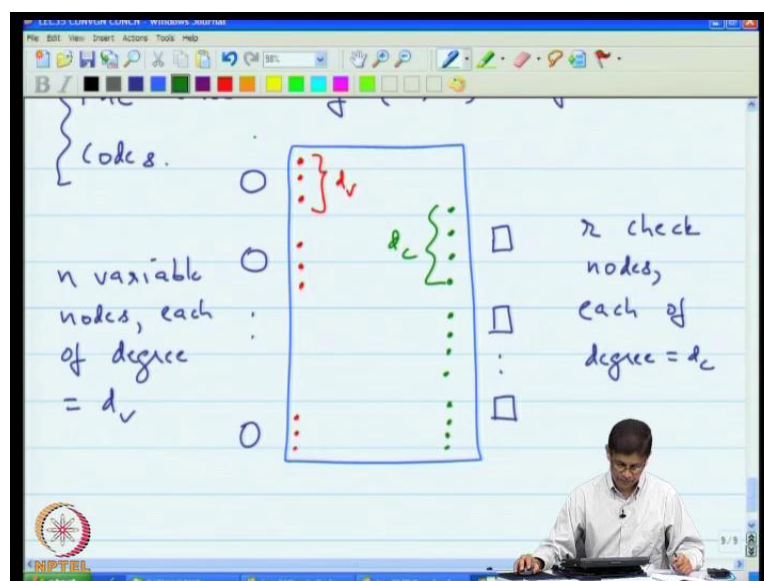 LEC35 CONVGN CONCN - Windows Journal
File Edit View Insert Actions Tools Help
98%
B I
Codes.
d_v
d_c
n variable
nodes, each
of degree
= d_v
r check
nodes,
each of
degree = d_c
3/3
NPTEL